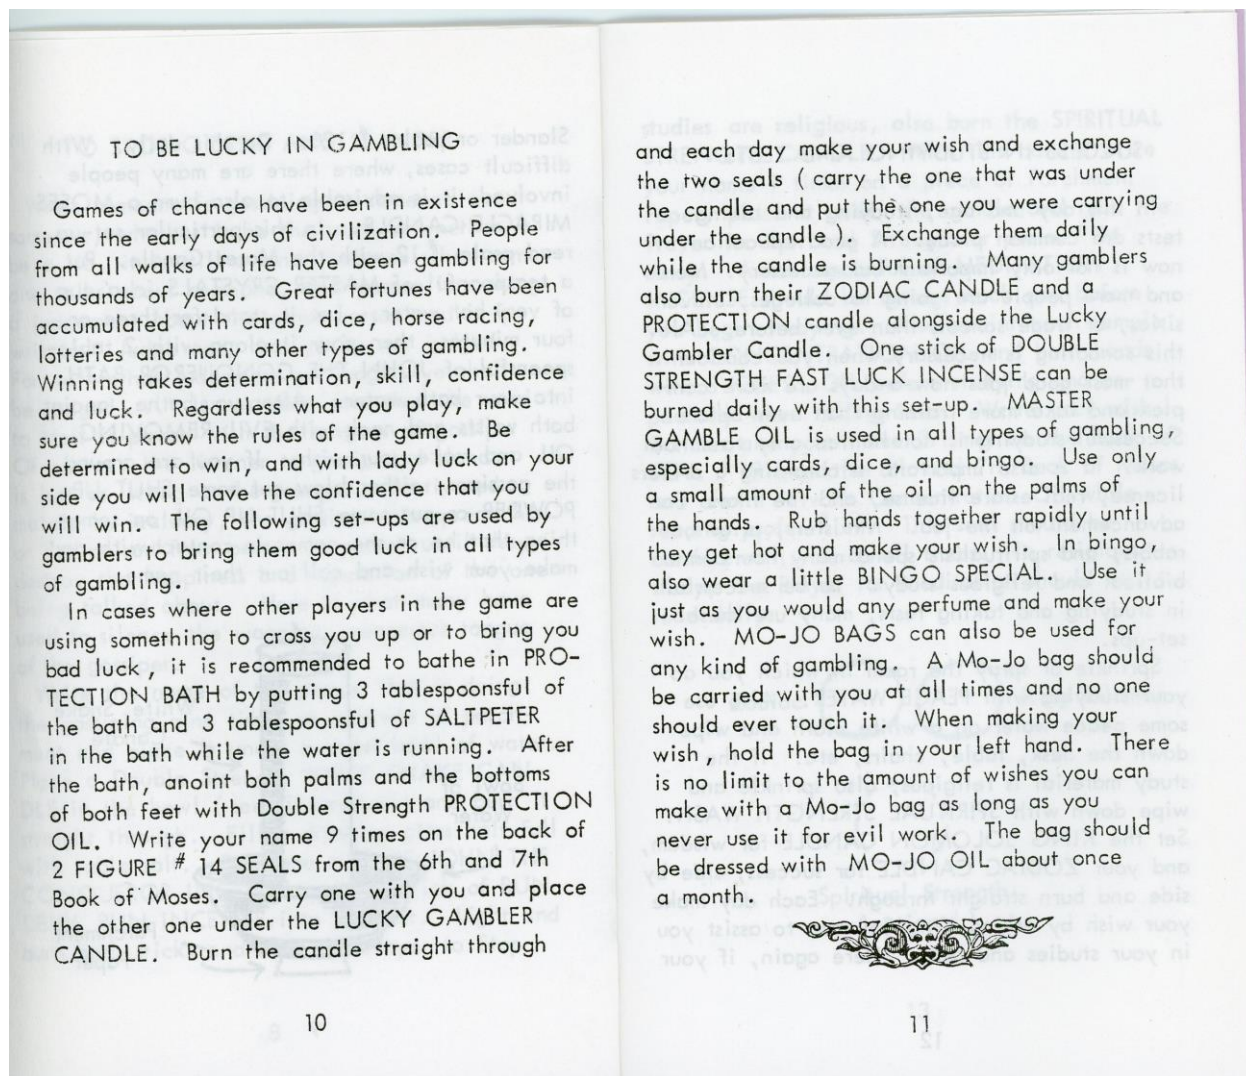 TO BE LUCKY IN GAMBLING
Games of chance have been in existence
since the early days of civilization. People
from all walks of life have been gambling for
thousands of years. Great fortunes have been
accumulated with cards, dice, horse racing,
lotteries and many other types of gambling.
Winning takes determination, skill, confidence
and luck. Regardless what you play, make
sure you know the rules of the game. Be
determined to win, and with lady luck on your
side you will have the confidence that you
will win. The following set-ups are used by
gamblers to bring them good luck in all types
of gambling.
In cases where other players in the game are
using something to cross you up or to bring you
bad luck, it is recommended to bathe in PRO-
TECTION BATH by putting 3 tablespoonsful of
the bath and 3 tablespoonsful of SALTPETER
in the bath while the water is running. After
the bath, anoint both palms and the bottoms
of both feet with Double Strength PROTECTION
OIL. Write your name 9 times on the back of
2 FIGURE # 14 SEALS from the 6th and 7th
Book of Moses. Carry one with you and place
the other one under the LUCKY GAMBLER
CANDLE. Burn the candle straight through
10
and each day make your wish and exchange
the two seals ( carry the one that was under
the candle and put the one you were carrying
under the candle ). Exchange them daily
while the candle is burning. Many gamblers
also burn their ZODIAC CANDLE and a
PROTECTION candle alongside the Lucky
Gambler Candle. One stick of DOUBLE
STRENGTH FAST LUCK INCENSE can be
burned daily with this set-up. MASTER
GAMBLE OIL is used in all types of gambling,
especially cards, dice and bingo. Use only
a small amount of the oil on the palms of
the hands. Rub hands together rapidly until
they get hot and make your wish. In bingo,
also wear a little BINGO SPECIAL. Use it
just as you would any perfume and make your
wish. MO-JO BAGS can also be used for
any kind of gambling. A Mo-Jo bag should
be carried with you at all times and no one
should ever touch it. When making your
wish, hold the bag in your left hand. There
is no limit to the amount of wishes you can
make with a Mo-Jo bag as long as you
never use it for evil work. The bag should
be dressed with MO-JO OIL about once
a month.
11